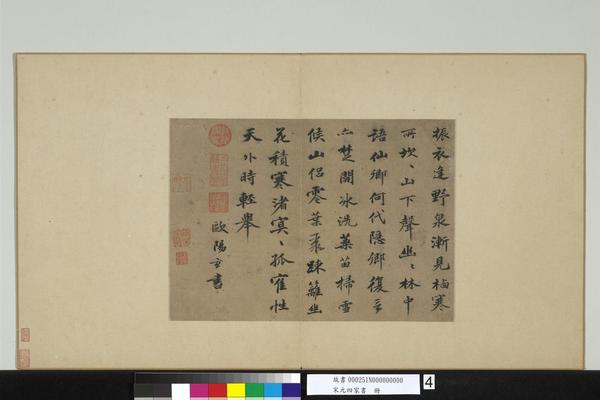 振衣逢野泉漸見柏寒
所坎々山下聲幽々林中
語仙鄉何代隱鄉復言
亦楚開冰洗藥苗掃雪
候山侶零葉聚踈籬幽
花積寒渚寞々孤雀性
天外時輕舉
歐陽玄書
故書 000251N000000000
宋元四家書 冊
4